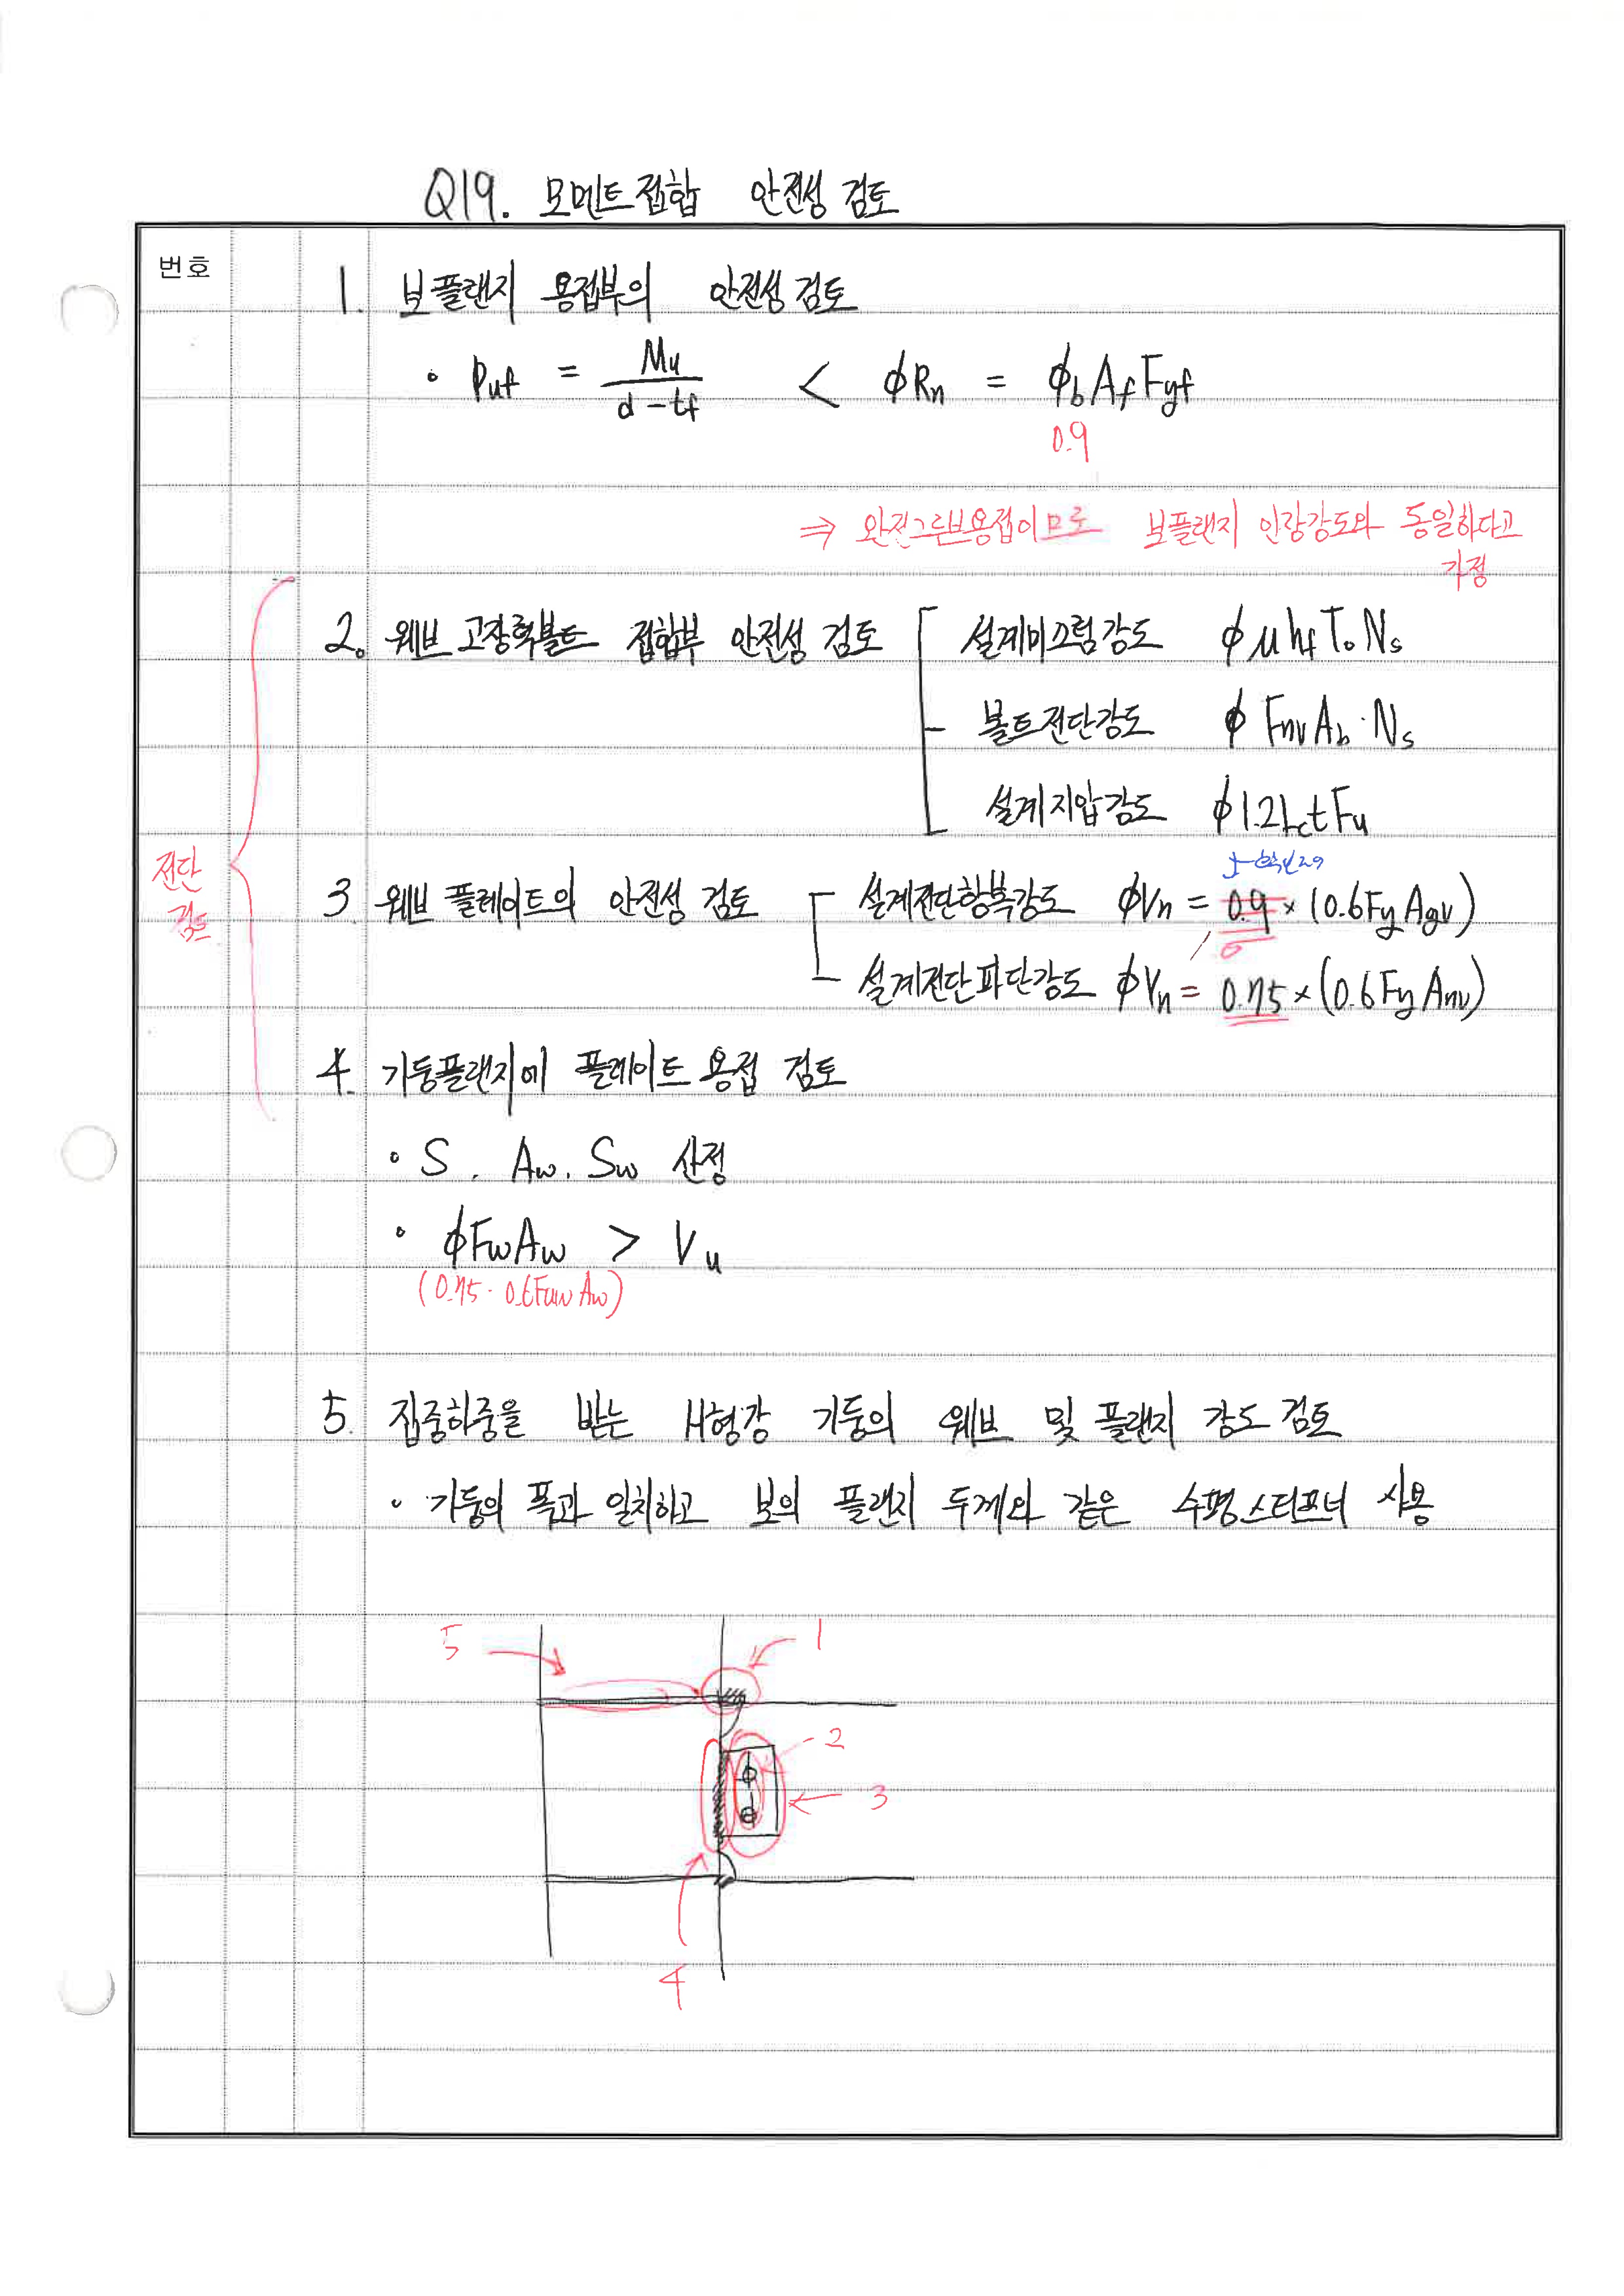 Q19. 모멘트접합 안전성 검토
번호
1. 보플랜지 용접부의 안전성 검토
• Puf = Mu / (d - tf) < ϕRn = ϕb Af Fyf
0.9
⇒ 완전그루브용접이므로 보플랜지 인장강도와 동일하다고
가정
2. 웨브 고장력볼트 접합부 안전성 검토 설계미끄럼강도 ϕ μ hf To Ns
볼트전단강도 ϕ Fnv Ab · Ns
설계지압강도 ϕ 1.2 Lc t Fu
전단
검토
3. 웨브 플레이트의 안전성 검토 설계전단항복강도 ϕVn = 0.9 × (0.6 Fy Agv)
설계전단파단강도 ϕVn = 0.75 × (0.6 Fy Anv)
4. 기둥플랜지에 플레이트 용접 검토
• S, Aw, Sw 산정
• ϕ Fw Aw > Vu
(0.75 · 0.6 Fuw Aw)
5. 집중하중을 받는 H형강 기둥의 웨브 및 플랜지 강도 검토
• 기둥의 폭과 일치하고 보의 플랜지 두께와 같은 수평스티프너 사용
5
1
2
3
4